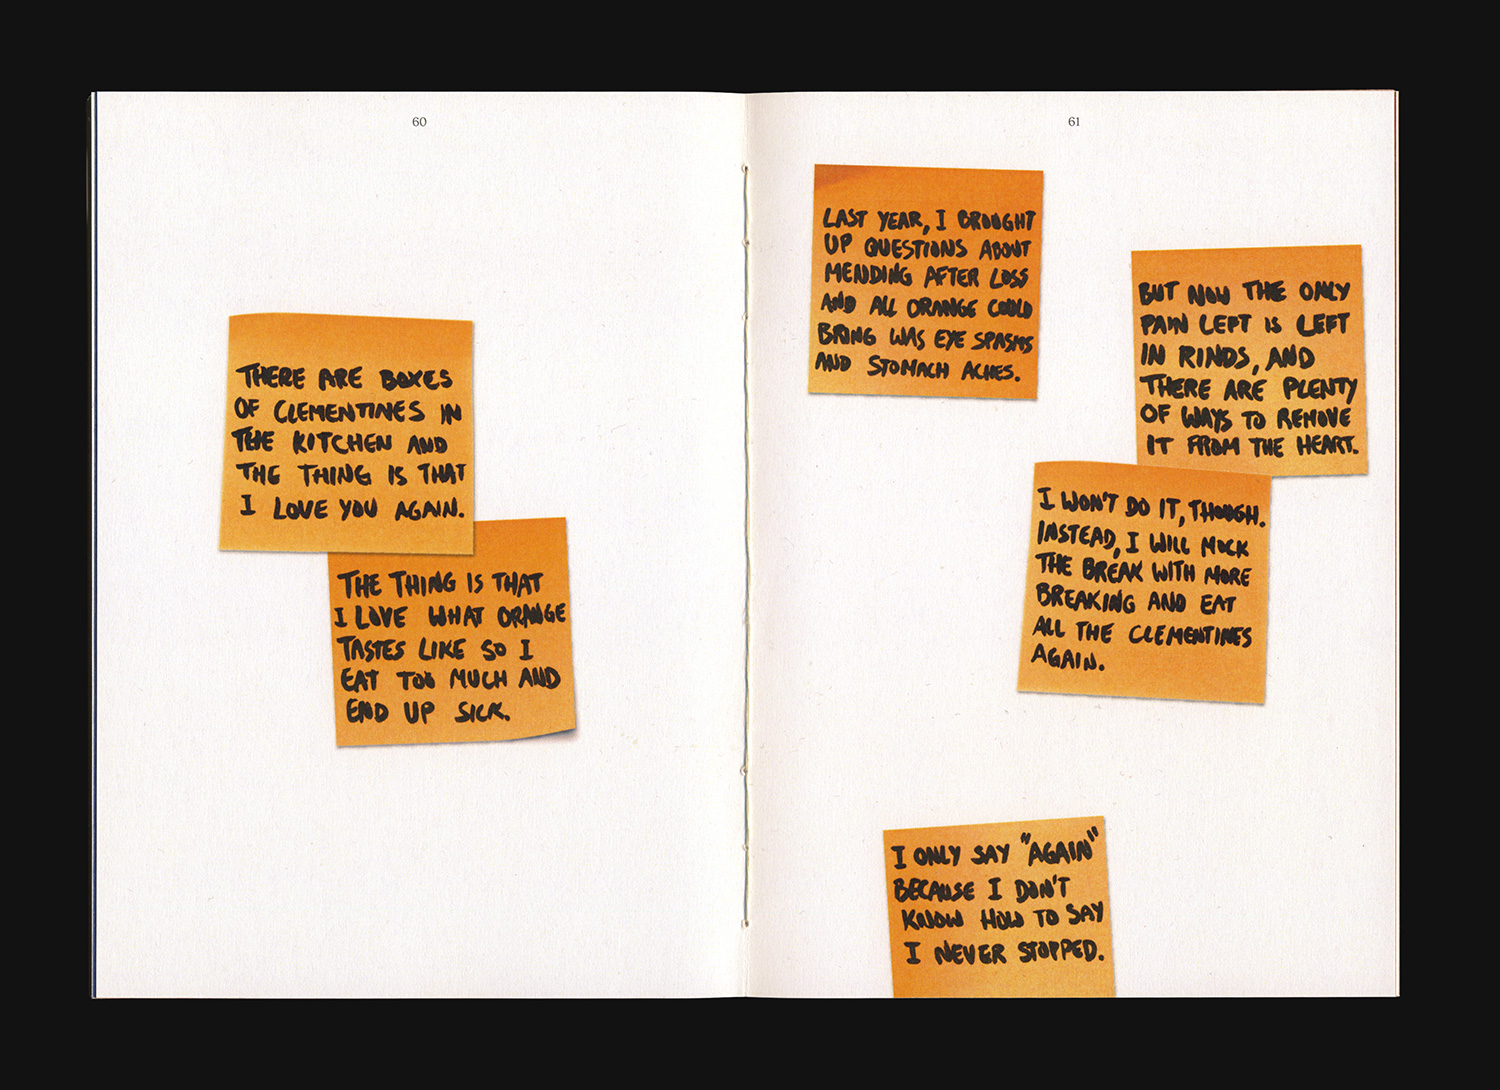 60
THERE ARE BOXES
OF CLEMENTINES IN
THE KITCHEN AND
THE THING IS THAT
I LOVE YOU AGAIN.
THE THING IS THAT
I LOVE WHAT ORANGE
TASTES LIKE SO I
EAT TOO MUCH AND
END UP SICK.
61
LAST YEAR, I BROUGHT
UP QUESTIONS ABOUT
MENDING AFTER LOSS
AND ALL ORANGE COULD
BRING WAS EYE SPASMS
AND STOMACH ACHES.
BUT NOW THE ONLY
PAIN LEFT IS LEFT
IN RINDS, AND
THERE ARE PLENTY
OF WAYS TO REMOVE
IT FROM THE HEART.
I WON'T DO IT, THOUGH.
INSTEAD, I WILL MOCK
THE BREAK WITH MORE
BREAKING AND EAT
ALL THE CLEMENTINES
AGAIN.
I ONLY SAY "AGAIN"
BECAUSE I DON'T
KNOW HOW TO SAY
I NEVER STOPPED.